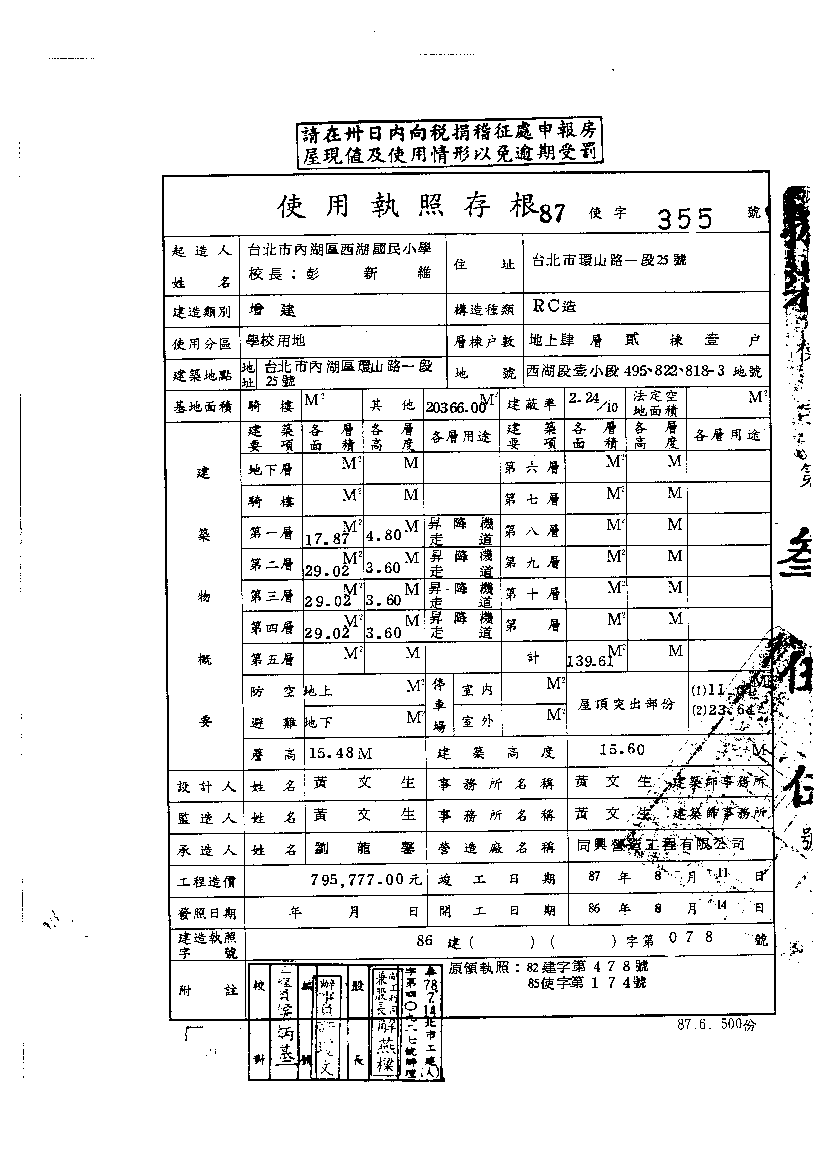 請在卅日內向稅捐稽征處申報房
屋現值及使用情形以免逾期受罰
使用執照存根 87 使字 355 號
起造人姓名 台北市內湖區西湖國民小學
校長：彭新維 住址 台北市環山路一段25號
建造類別 增建 構造種類 RC造
使用分區 學校用地 層棟戶數 地上肆層貳棟壹戶
建築地點 地址 台北市內湖區環山路一段
25號 地號 西湖段壹小段 495、822、818-3 地號
基地面積 騎樓 M² 其他 20366.00 M² 建蔽率 2.24/10 法定空地面積 M²
建築物概要
建築要項 各層面積 各層高度 各層用途 建築要項 各層面積 各層高度 各層用途
地下層 M² M 第六層 M² M
騎樓 M² M 第七層 M² M
第一層 17.87 M² 4.80 M 昇降機走道 第八層 M² M
第二層 29.02 M² 3.60 M 昇降機走道 第九層 M² M
第三層 29.02 M² 3.60 M 昇降機走道 第十層 M² M
第四層 29.02 M² 3.60 M 昇降機走道 第 層 M² M
第五層 M² M 計 139.61 M² M
防空 地上 M² 停車場 室內 M² 屋頂突出部份 (1)11.
避難 地下 M² 室外 M² (2)23.64
層高 15.48M 建築高度 15.60 M
設計人 姓名 黃文生 事務所名稱 黃文生建築師事務所
監造人 姓名 黃文生 事務所名稱 黃文生建築師事務所
承造人 姓名 劉龍馨 營造廠名稱 同興營造工程有限公司
工程造價 795,777.00元 竣工日期 87年8月11日
發照日期 年 月 日 開工日期 86年8月14日
建造執照字號 86建( )( )字第078號
附註 原領執照：82建字第478號
85使字第174號
校對
股長
87.6. 500份
第
叁
伍
號